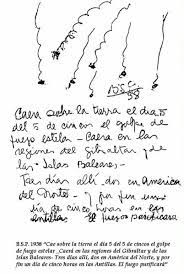 B.S.P.
38
Caera sobre la tierra el dia 5
del 5 de cinco el golpe de
fuego estelar – Caera en las
regiones del Gibraltar y de
las "Islas Baleares" –
Tres dias allí, dos en America
del Norte, y por fin un
dia de cinco horas en las
Antillas. El fuego purificara
B.S.P. 1938 "Cae sobre la tierra el día 5 del 5 de cinco el golpe
de fuego estelar _Caerá en las regiones del Gibraltar y de las
Islas Baleares- Tres días allí, dos en América del Norte, y por
fin un día de cinco horas en las Antillas. El fuego purificará"